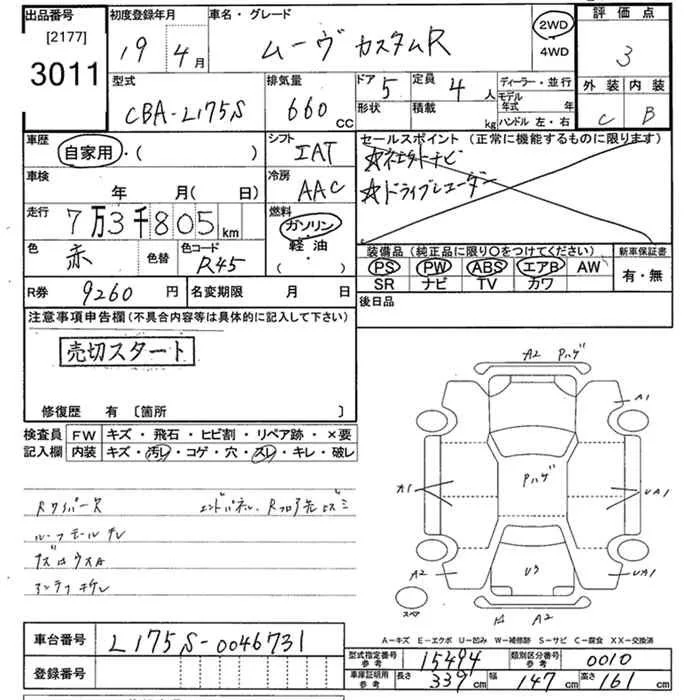 出品番号 初度登録年月 車名・グレード 評価点
[2177]
3011 19年 4月 ムーヴ カスタムR 2WD 4WD 3
型式 排気量 ドア 5 定員 4人 ディーラー・並行 外装 内装
CBA-L175S 660 CC 形状 積載 kg モデル年式 年 ハンドル 左・右 C B
車歴 シフト セールスポイント (正常に機能するものに限ります)
自家用・( ) IAT
☆ドライブレコーダー
車検 年 月( 日) 冷房 AAC
走行 7万3千805km 燃料 ガソリン
軽油
・( )
色 赤 色替 色コード R45
装備品 (純正品に限り○をつけてください) 新車保証書
PS PW ABS エアB AW 有・無
SR ナビ TV カワ
R券 9260円 名変期限 月 日 後日品
注意事項申告欄 (不具合内容等は具体的に記入して下さい)
売切スタート
修復歴 有 〔箇所 〕
検査員 FW キズ・飛石・ヒビ割・リペア跡・×要
記入欄 内装 キズ・汚レ・コゲ・穴・スレ・キレ・破レ
Rワイパー欠
ルーフモール
アンテナ
A2 Pハゲ
A1
A1 Pハゲ UA1
A2 Uク UA1
スペア
A2
A-キズ E-エクボ U-凹み W-補修跡 S-サビ C-腐食 XX-交換済
車台番号 L175S-0046731
型式指定番号 参考 15494 類別区分番号 参考 0010
登録番号 車庫証明用 参考 長さ 339cm 幅 147cm 高さ 161cm